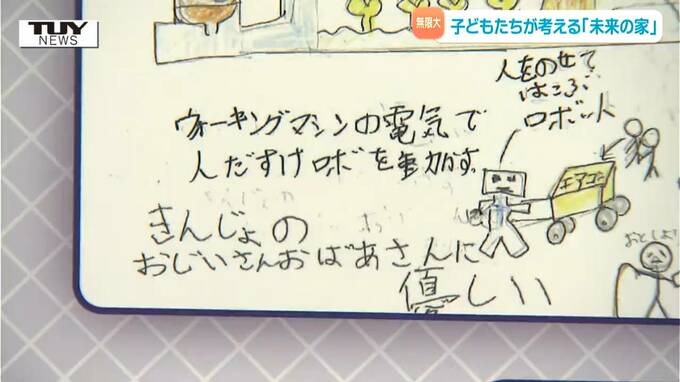 TUY
NEWS
無限大
子どもたちが考える「未来の家」
人をのせて
はこぶ
ロボット
ウォーキングマシンの電気で
人だすけロボを動かす。
エアコン
きんじょの
おじいさんおばあさんに
優しい
おとしより